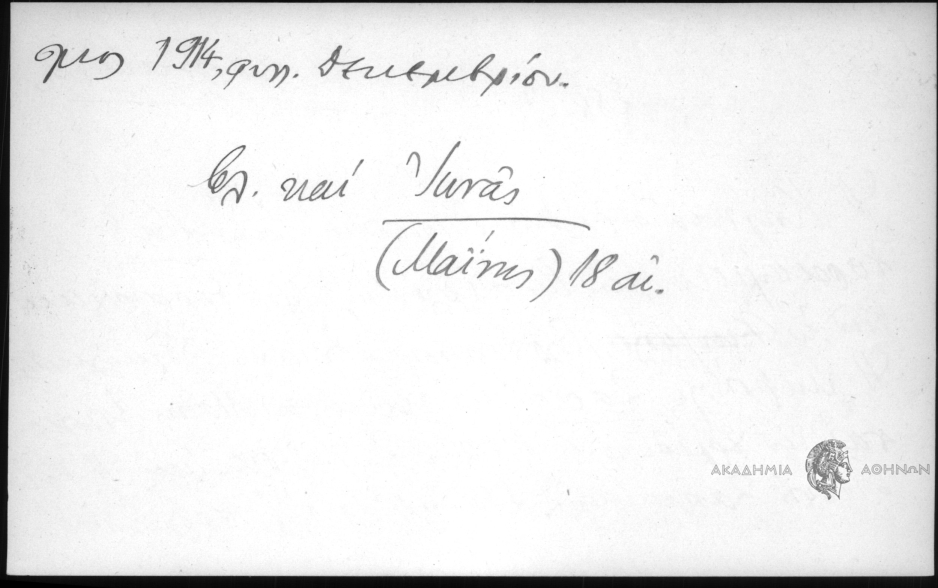 μος 1914, φυλ. Δεκεμβρίου.
βλ. καί
(Μαΐνης) 18 αἰ.
ΑΚΑΔΗΜΙΑ ΑΘΗΝΩΝ